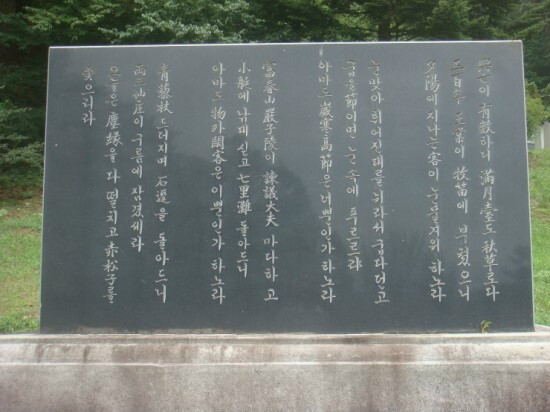 興亡이 有數하니 滿月臺도 秋草로다
五百年 王業이 牧笛에 부쳤으니
夕陽에 지나는 客이 눈물겨워 하노라
눈맞아 휘어진대를 뉘라서 굽다던고
굽을節이면 눈 속에 푸르르랴
아마도 歲寒高節은 너뿐인가 하노라
富春山 嚴子陵이 諫議大夫 마다하고
小艇에 낚대 싣고 七里灘 돌아드니
아마도 物外閒客은 이뿐인가 하노라
靑藜杖 드더지며 石逕을 돌아드니
兩三仙庄이 구름에 잠겼세라
오늘은 塵緣을 다 떨치고 赤松子를
좇으리라